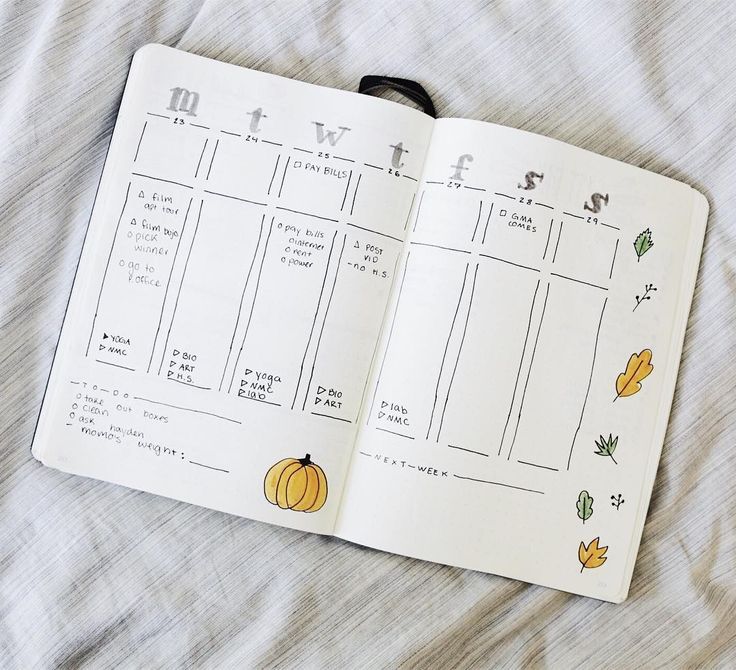 m t w t f s s
23 24 25 26 27 28 29
PAY BILLS
GMA
COMES
film
apt tour
film bujo
pick
winner
go to
pay bills
rent
power
POST
VID
- no H.S.
YOGA
NMC
BIO
ART
H.S.
yoga
NMC
lab
BIO
ART
lab
NMC
TO-DO
take out boxes
clean
ask hayden
- momo's weight:
NEXT-WEEK